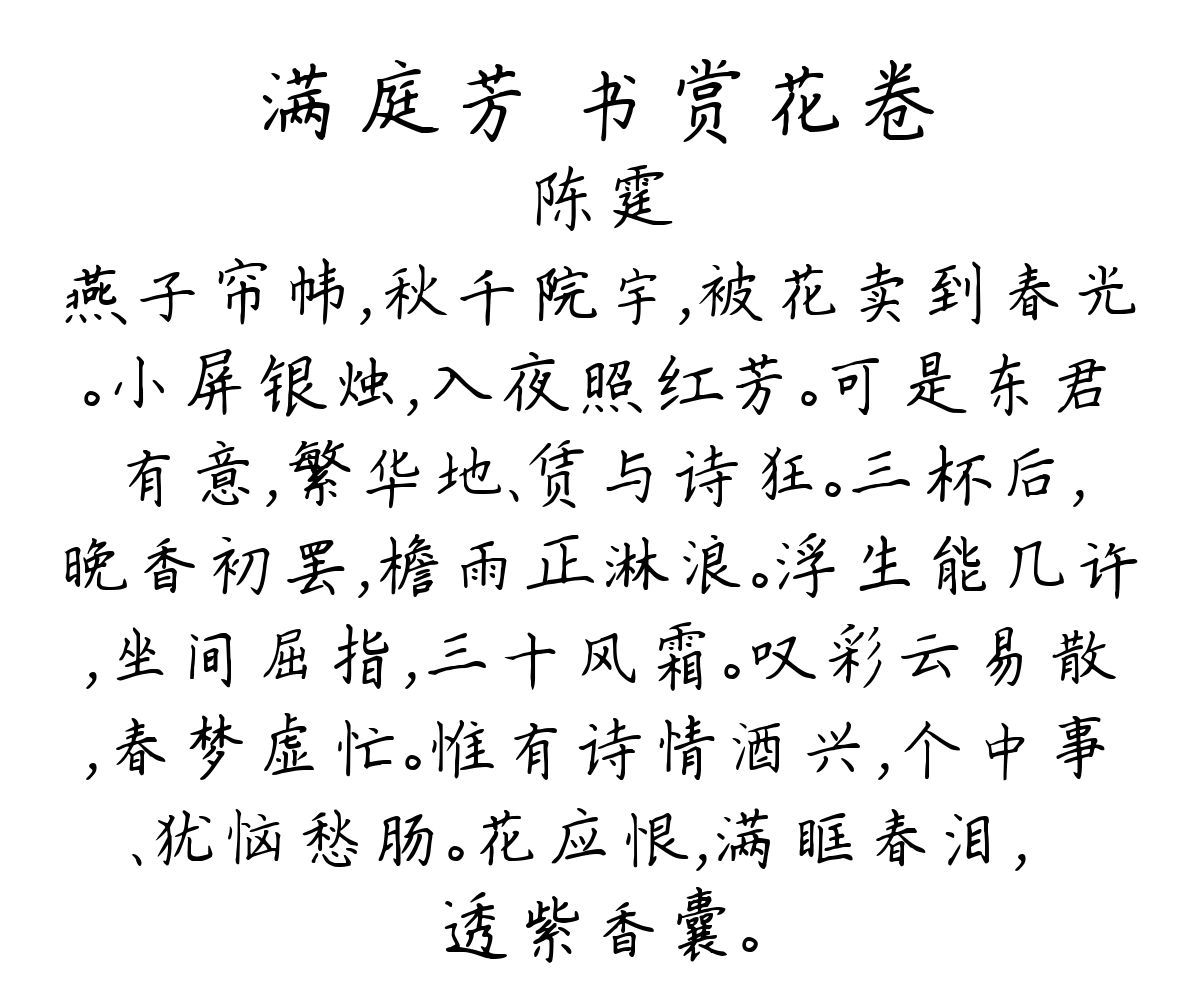 满庭芳 书赏花卷
陈霆
燕子帘帏,秋千院宇,被花卖到春光
。小屏银烛,入夜照红芳。可是东君
有意,繁华地、赁与诗狂。三杯后,
晚香初罢,檐雨正淋浪。浮生能几许
,坐间屈指,三十风霜。叹彩云易散
,春梦虚忙。惟有诗情酒兴,个中事
、犹恼愁肠。花应恨,满眶春泪,
透紫香囊。